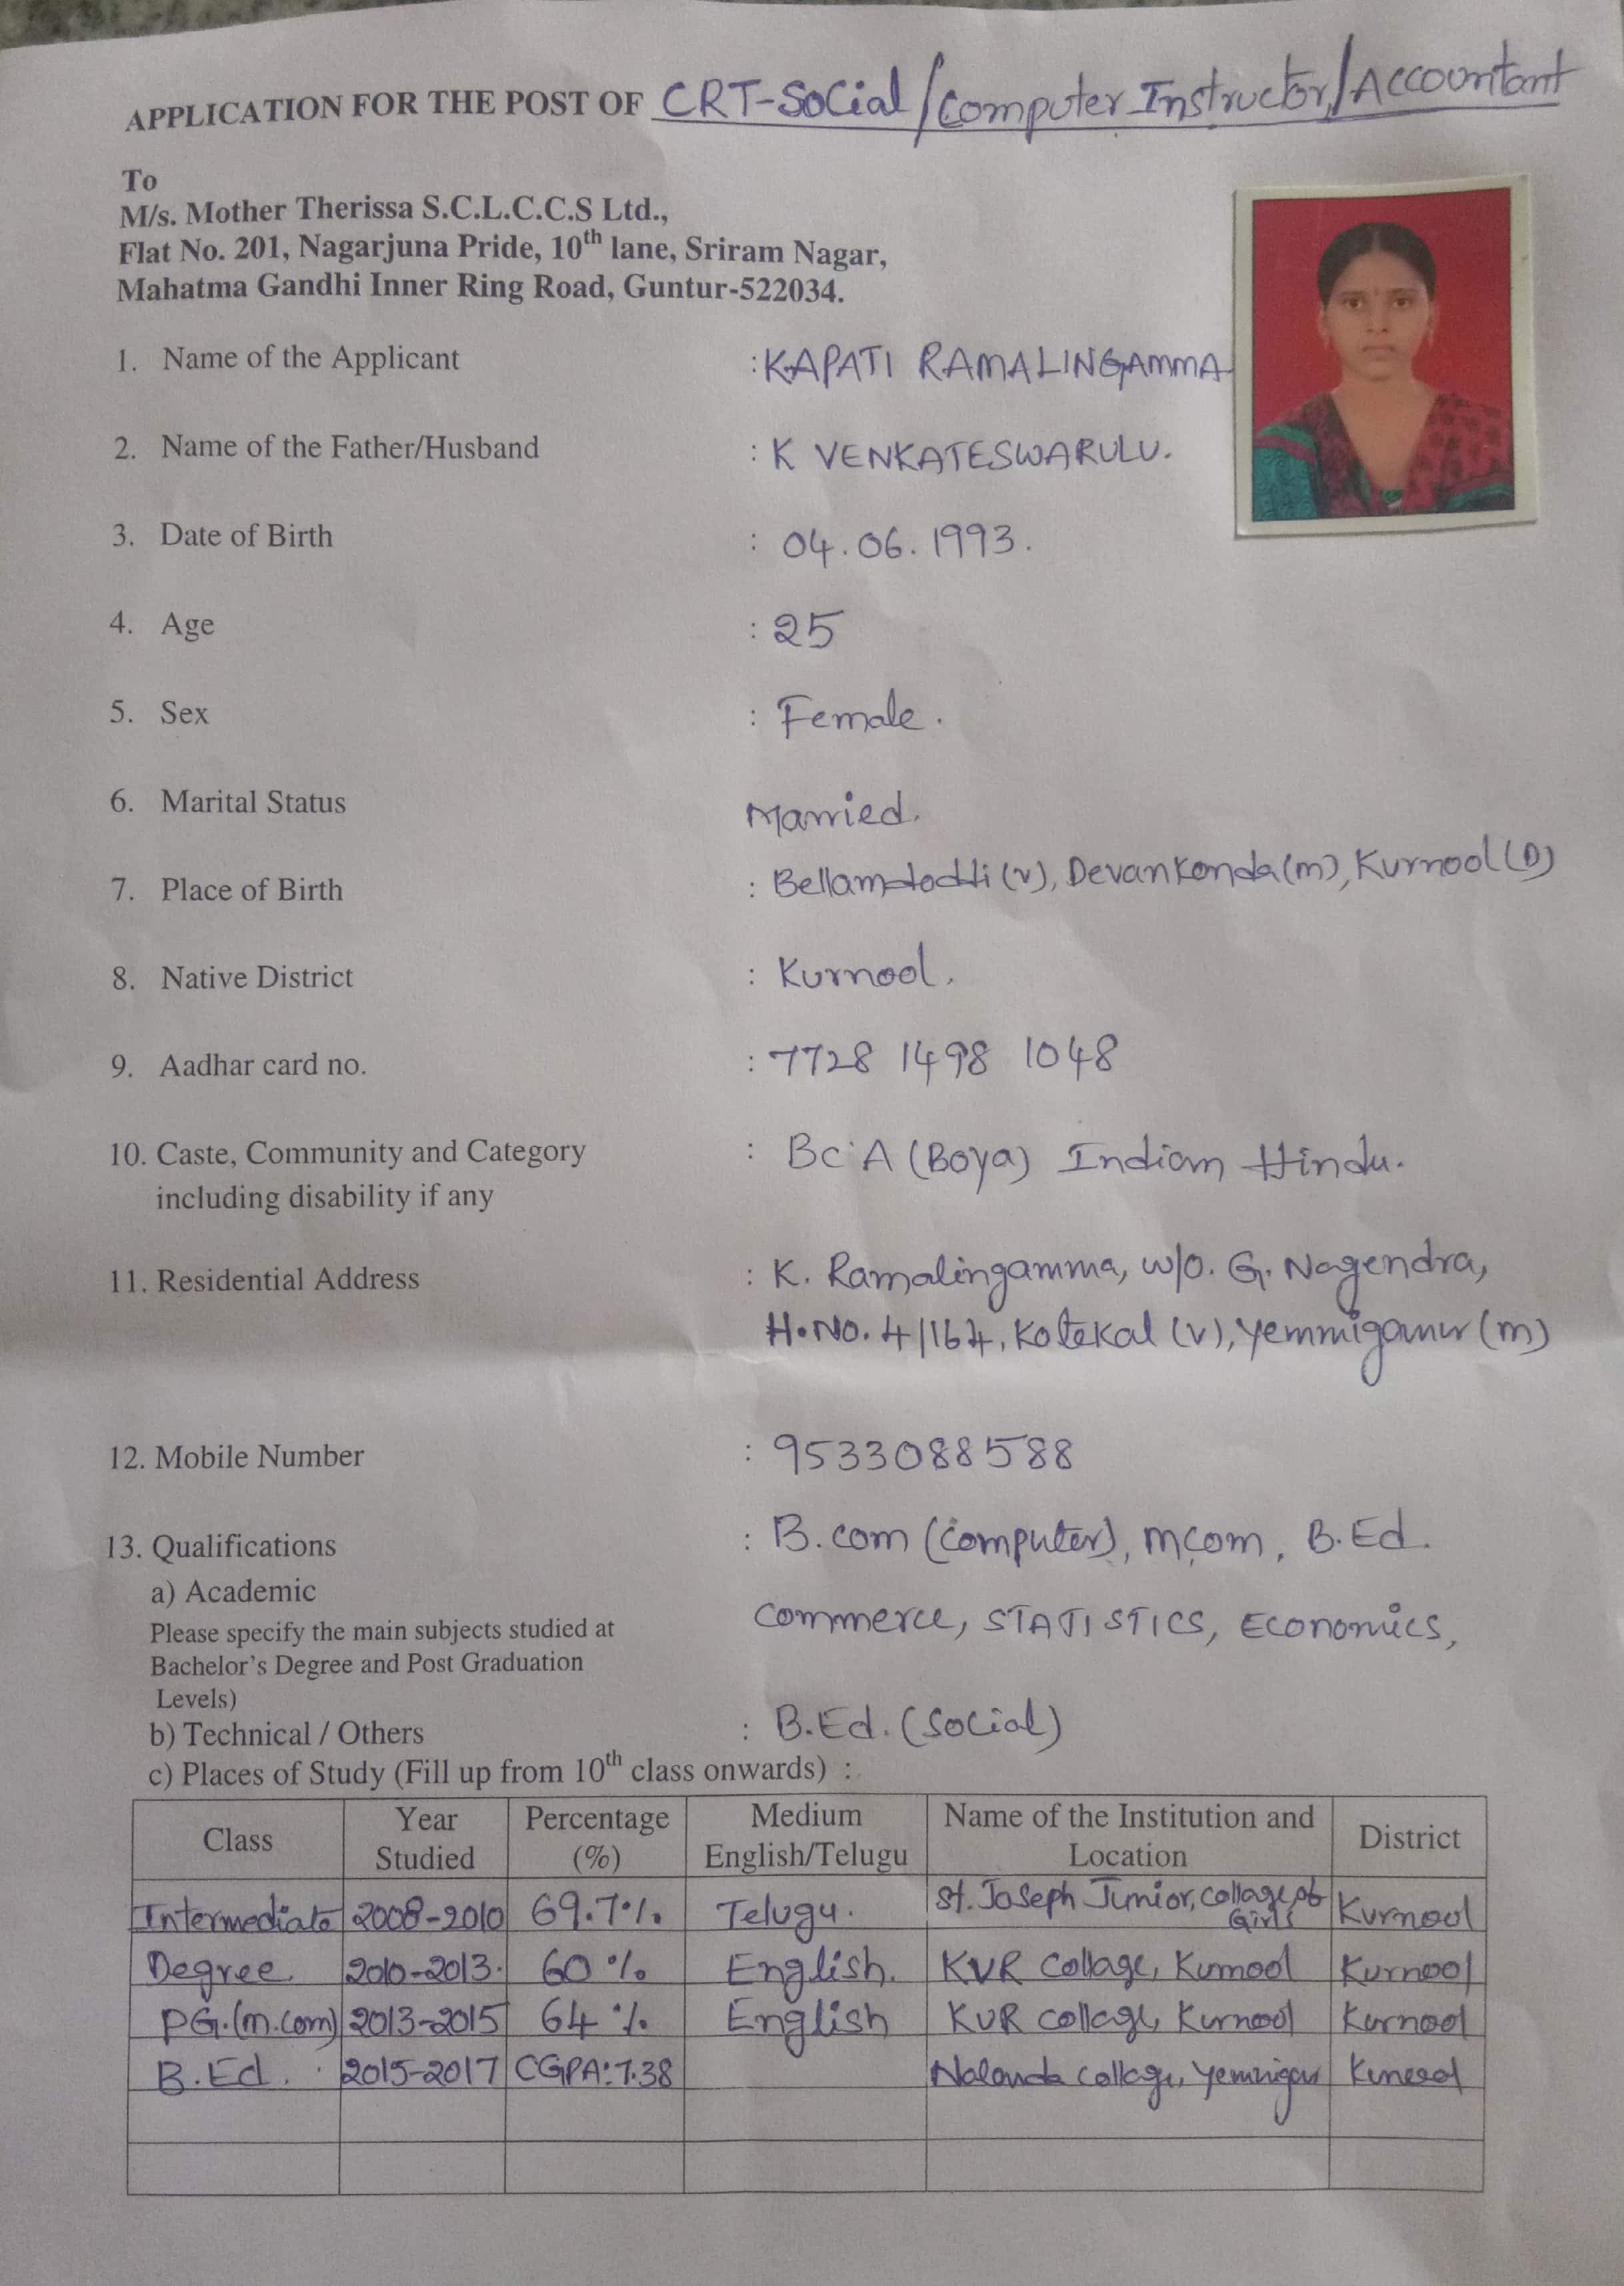 APPLICATION FOR THE POST OF CRT-Social/Computer Instructor/Accountant
To
M/s. Mother Therissa S.C.L.C.C.S Ltd.,
Flat No. 201, Nagarjuna Pride, 10th lane, Sriram Nagar,
Mahatma Gandhi Inner Ring Road, Guntur-522034.
1. Name of the Applicant : KAPATI RAMALINGAMMA
2. Name of the Father/Husband : K VENKATESWARULU.
3. Date of Birth : 04.06.1993.
4. Age : 25
5. Sex : Female.
6. Marital Status Married.
7. Place of Birth : Bellamdoddi (v), Devankonda (m), Kurnool (D)
8. Native District : Kurnool.
9. Aadhar card no. : 7728 1498 1048
10. Caste, Community and Category : BC A (Boya) Indian Hindu.
including disability if any
11. Residential Address : K. Ramalingamma, w/o. G. Nagendra,
H.No. 4/164, Kotekal (v), Yemmiganur (m)
12. Mobile Number : 9533088588
13. Qualifications : B.com (Computer), mcom, B.Ed.
a) Academic
Please specify the main subjects studied at Commerce, STATISTICS, Economics,
Bachelor's Degree and Post Graduation
Levels)
b) Technical / Others : B.Ed. (Social)
c) Places of Study (Fill up from 10th class onwards) :
Class Year Studied Percentage (%) Medium English/Telugu Name of the Institution and Location District
Intermediate 2008-2010 69.7% Telugu. St. Joseph Junior, collage of Girls Kurnool
Degree. 2010-2013. 60% English. KVR Collage, Kurnool Kurnool
PG.(m.com) 2013-2015 64% English KVR collage, Kurnool Kurnool
B.Ed. 2015-2017 CGPA:7.38 Nalanda collage,